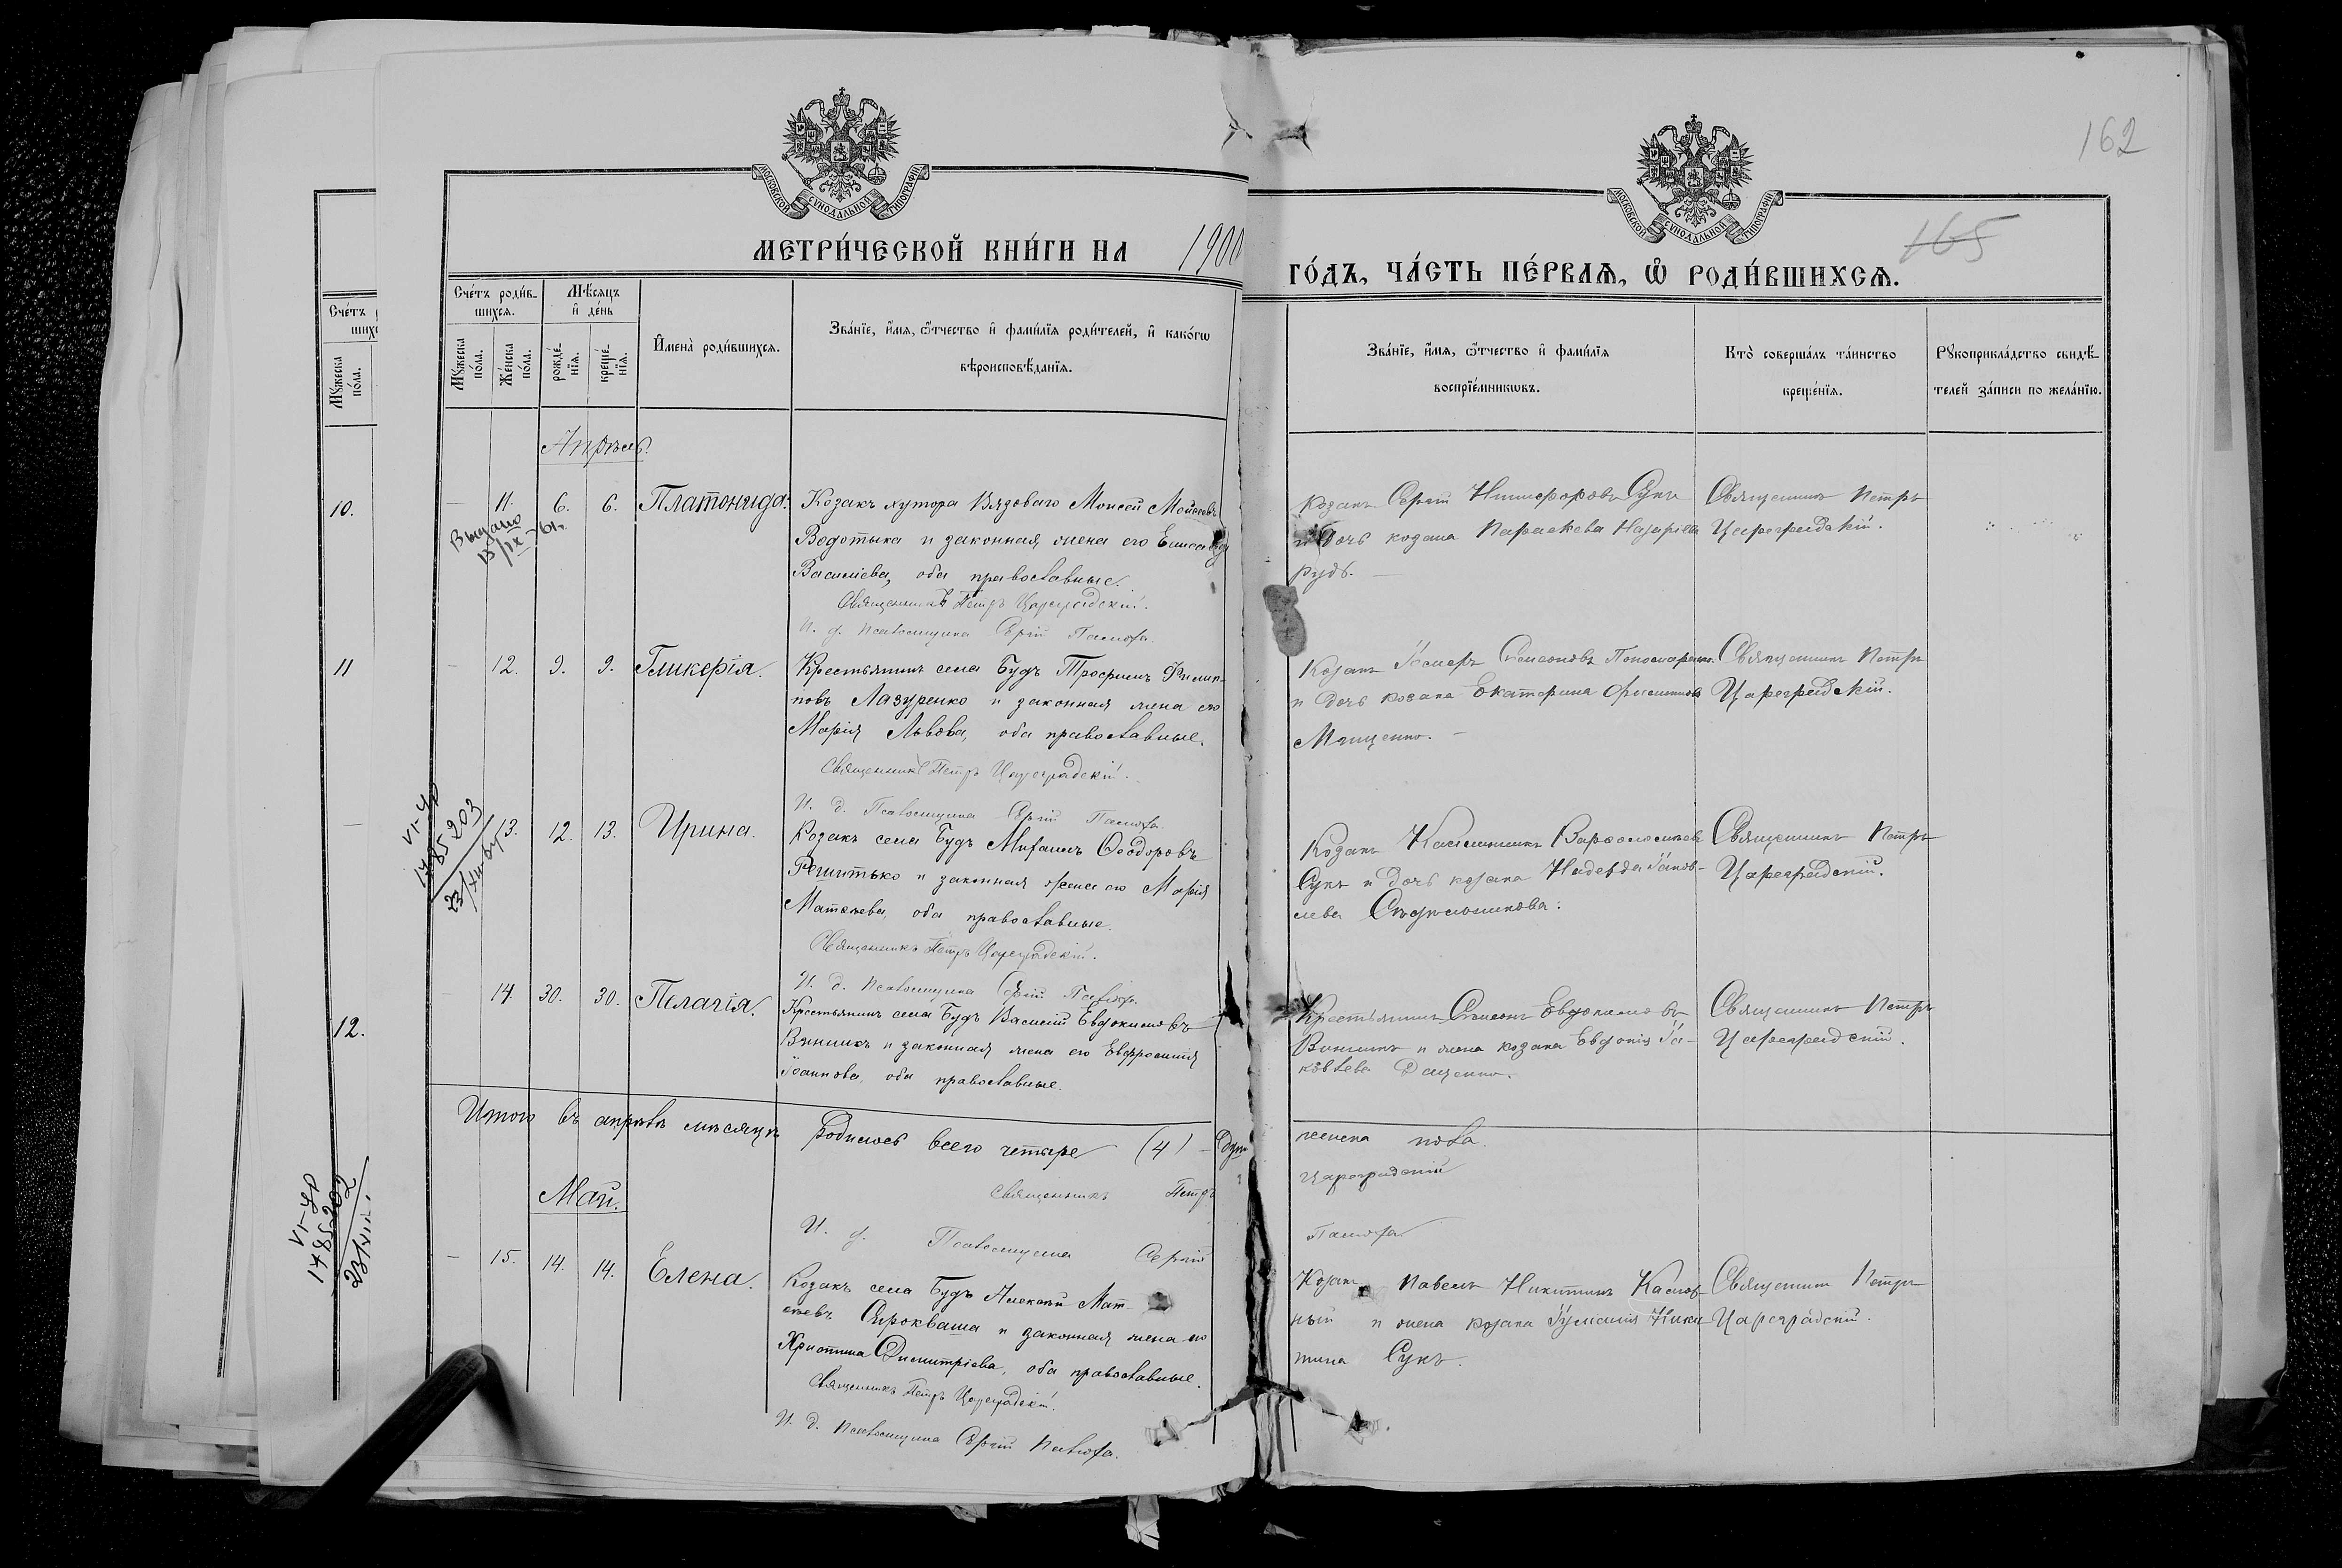 162
165
МОСКОВСКОЙ СУНОДАЛЬНОЙ ТИПОГРАФІИ
МОСКОВСКОЙ СУНОДАЛЬНОЙ ТИПОГРАФІИ
МЕТРИ́ЧЕСКОЙ КНИ́ГИ НА 1900
ГО́ДЪ, ЧА́СТЬ ПЕ́РВАѦ, Ѡ҆ РОДИ́ВШИХСѦ.
Сче́тъ роди́в-
шихсѧ.
Мѣ́сѧцъ
и҆ де́нь
Мꙋжеска
по́ла.
Же́нска
по́ла.
рожде́-
нїѧ.
креще́-
нїѧ.
И҆мена̀ роди́вшихсѧ.
Зва́нїе, и҆́мѧ, ѻ҆́тчество и҆ фами́лїѧ роди́телей, и҆ како́гѡ
вѣроисповѣ́данїѧ.
Зва́нїе, и҆́мѧ, ѻ҆́тчество и҆ фами́лїѧ
воспрїе́мникѡвъ.
Кто̀ соверша́лъ та́инство
креще́нїѧ.
Рꙋкоприкла́дство свидѣ́-
телей за́писи по жела́нїю.
Сче́тъ
Мꙋжеска
по́ла.
10.
11
12.
Апрѣль.
11. 6. 6. Платонида.
Выдано
Козакъ хутора Вядоваго Моисей Моисеевъ
Водотыка и законная жена его
Василіева, оба православные.
Священникъ Петръ Цареградскій.
И. д. Псаломщика Сергій
Козакъ Сергій Никифоровъ Сукъ
и дочь козака Параскева Назаріева
Рудь.
Священникъ Петръ
Цареградскій.
12. 9. 9. Гликерія.
Крестьянинъ села Будъ Трофимъ Филип-
повъ Лазуренко и законная жена его
Марія Львова, оба православные.
Священникъ Петръ Цареградскій.
И. д. Псаломщика Сергій
Козакъ Симеоновъ Пономаренко
и дочь козака Екатерина Филиппова
Мащенко.
Священникъ Петръ
Цареградскій.
VI-УР
1785203
13. 12. 13. Ирина.
Козакъ села Будъ Михаилъ Ѳеодоровъ
Решитько и законная жена его Марія
Матѳеева, оба православные.
Священникъ Петръ Цареградскій.
И. д. Псаломщика Сергій
Козакъ Варѳоломеевъ
Сукъ и дочь козака Надежда Іаков-
лева
Священникъ Петръ
Цареградскій.
14. 30. 30. Пелагія.
Крестьянинъ села Будъ Василій Евдокимовъ
Винникъ и законная жена его Евфросинія
Іоаннова, оба православные.
Крестьянинъ Симеонъ Евдокимовъ
Винникъ и жена козака Евдокія Іа-
ковлева Даценко.
Священникъ Петръ
Цареградскій.
Итого въ апрѣлѣ мѣсяцѣ родилось всего четыре (4) души
женска пола.
Священникъ Петръ
Цареградскій
И. д. Псаломщика Сергій
Май.
VI-УР
1785202
15. 14. 14. Елена.
Козакъ села Будъ Алексѣй Мат-
ѳеевъ Сироквашa и законная жена его
Христина Димитріева, оба православные.
Священникъ Петръ Цареградскій.
И. д. Псаломщика Сергій
Козакъ Павелъ Никитинъ
и жена козака Іуліанія Ники-
тина Сукъ.
Священникъ Петръ
Цареградскій.